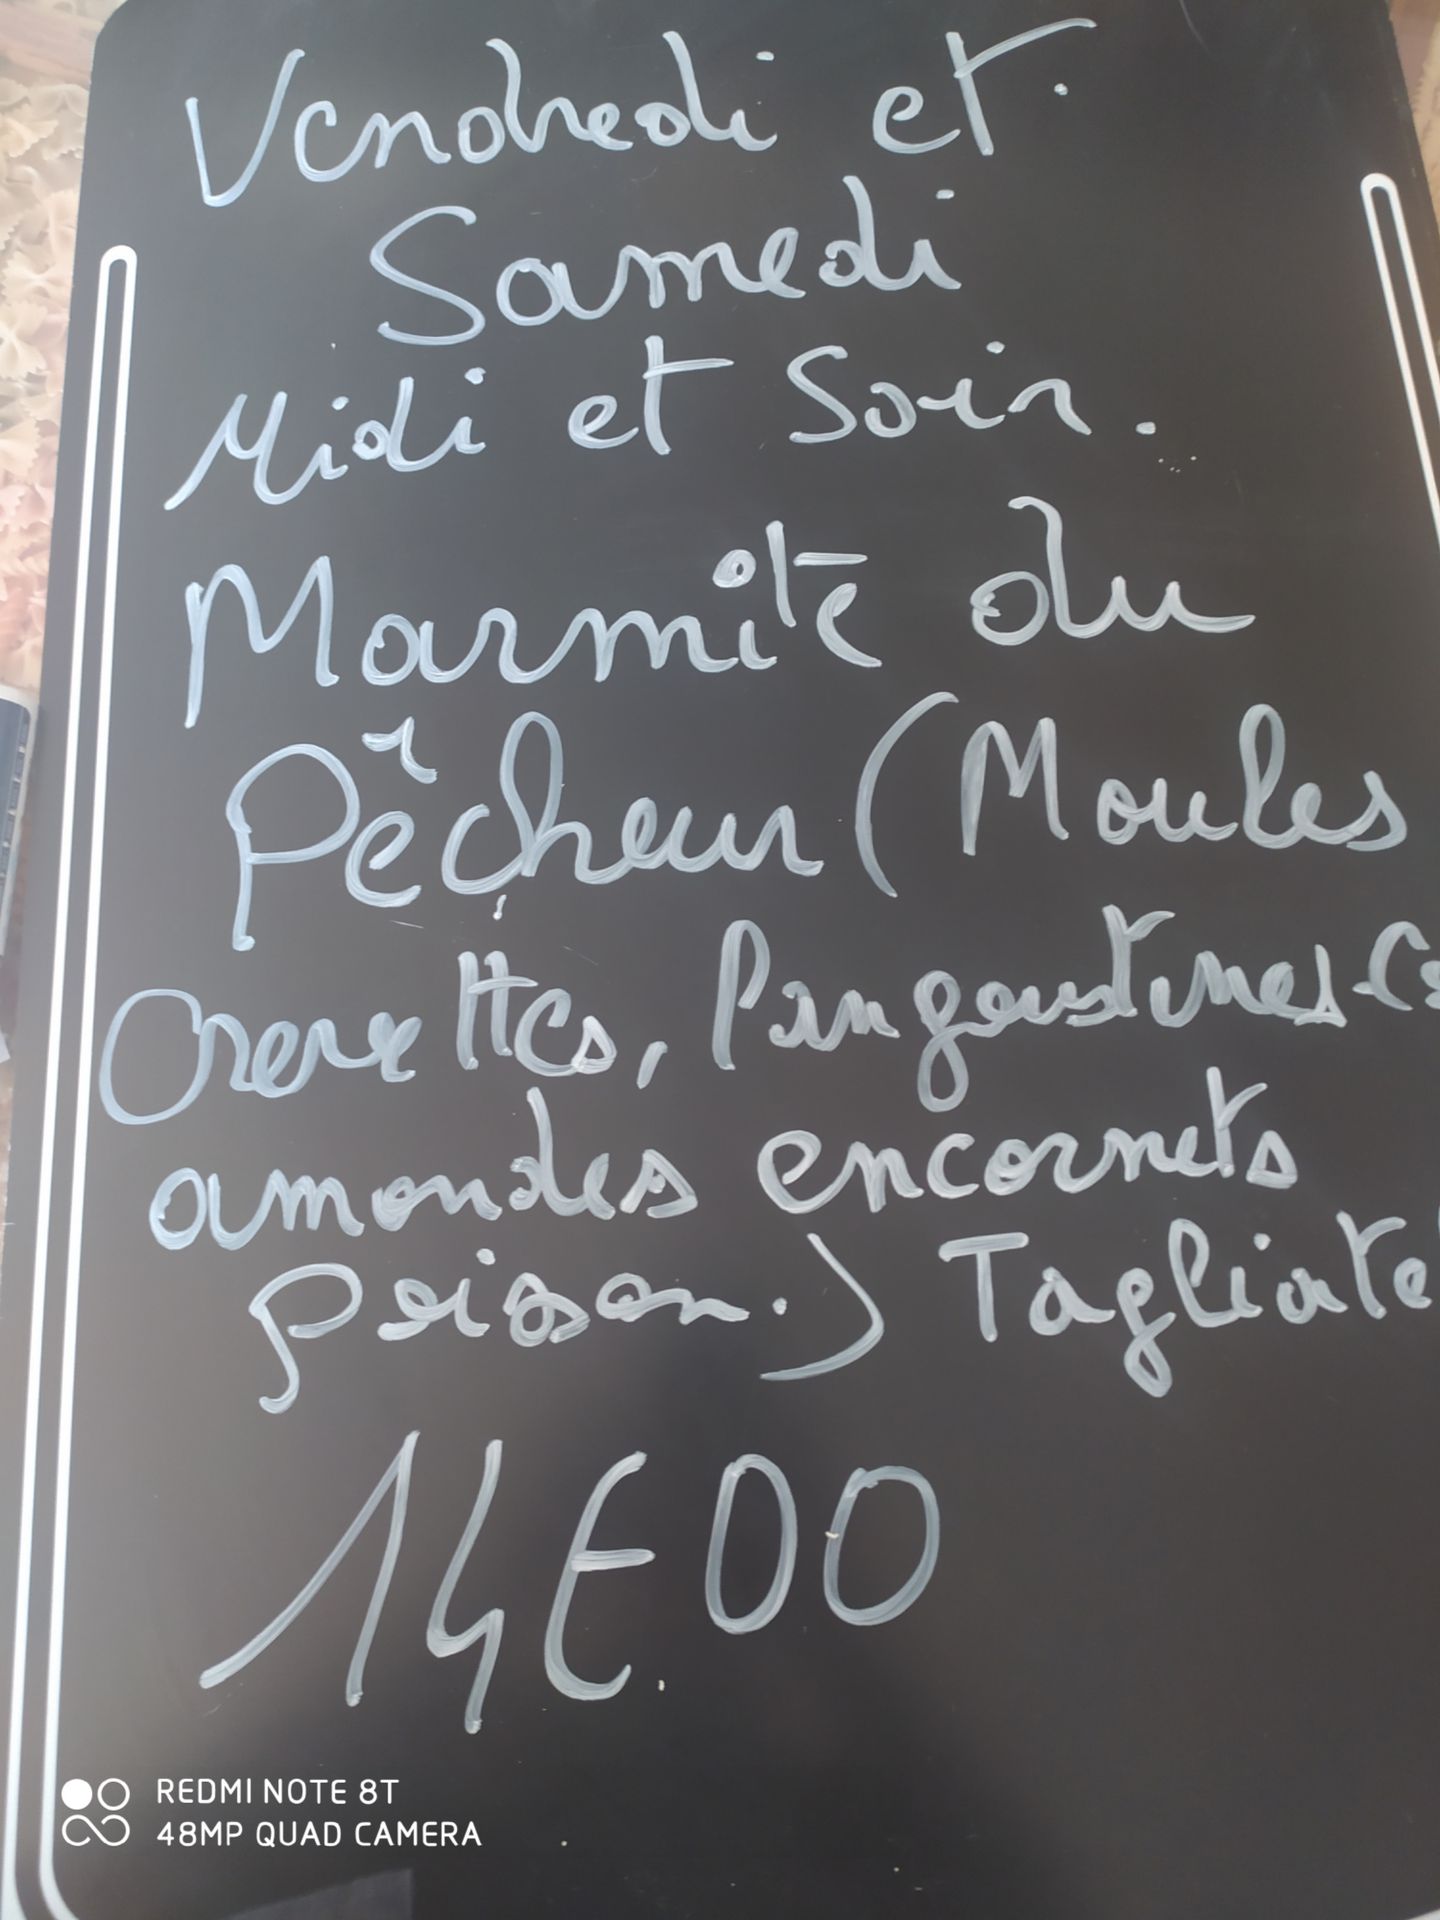 Vendredi et.
Samedi
Midi et Soir.
Marmite du
Pêcheur (Moules
Crevettes, langoustines
amandes encornets
poison.) Tagliate
14€00
REDMI NOTE 8T
48MP QUAD CAMERA